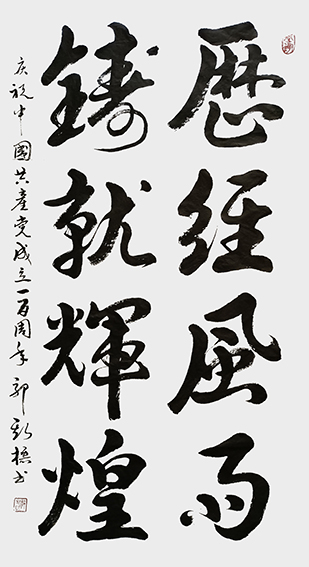 歷經風雨
鑄就輝煌
庆祝中國共產党成立一百周年 郭
书